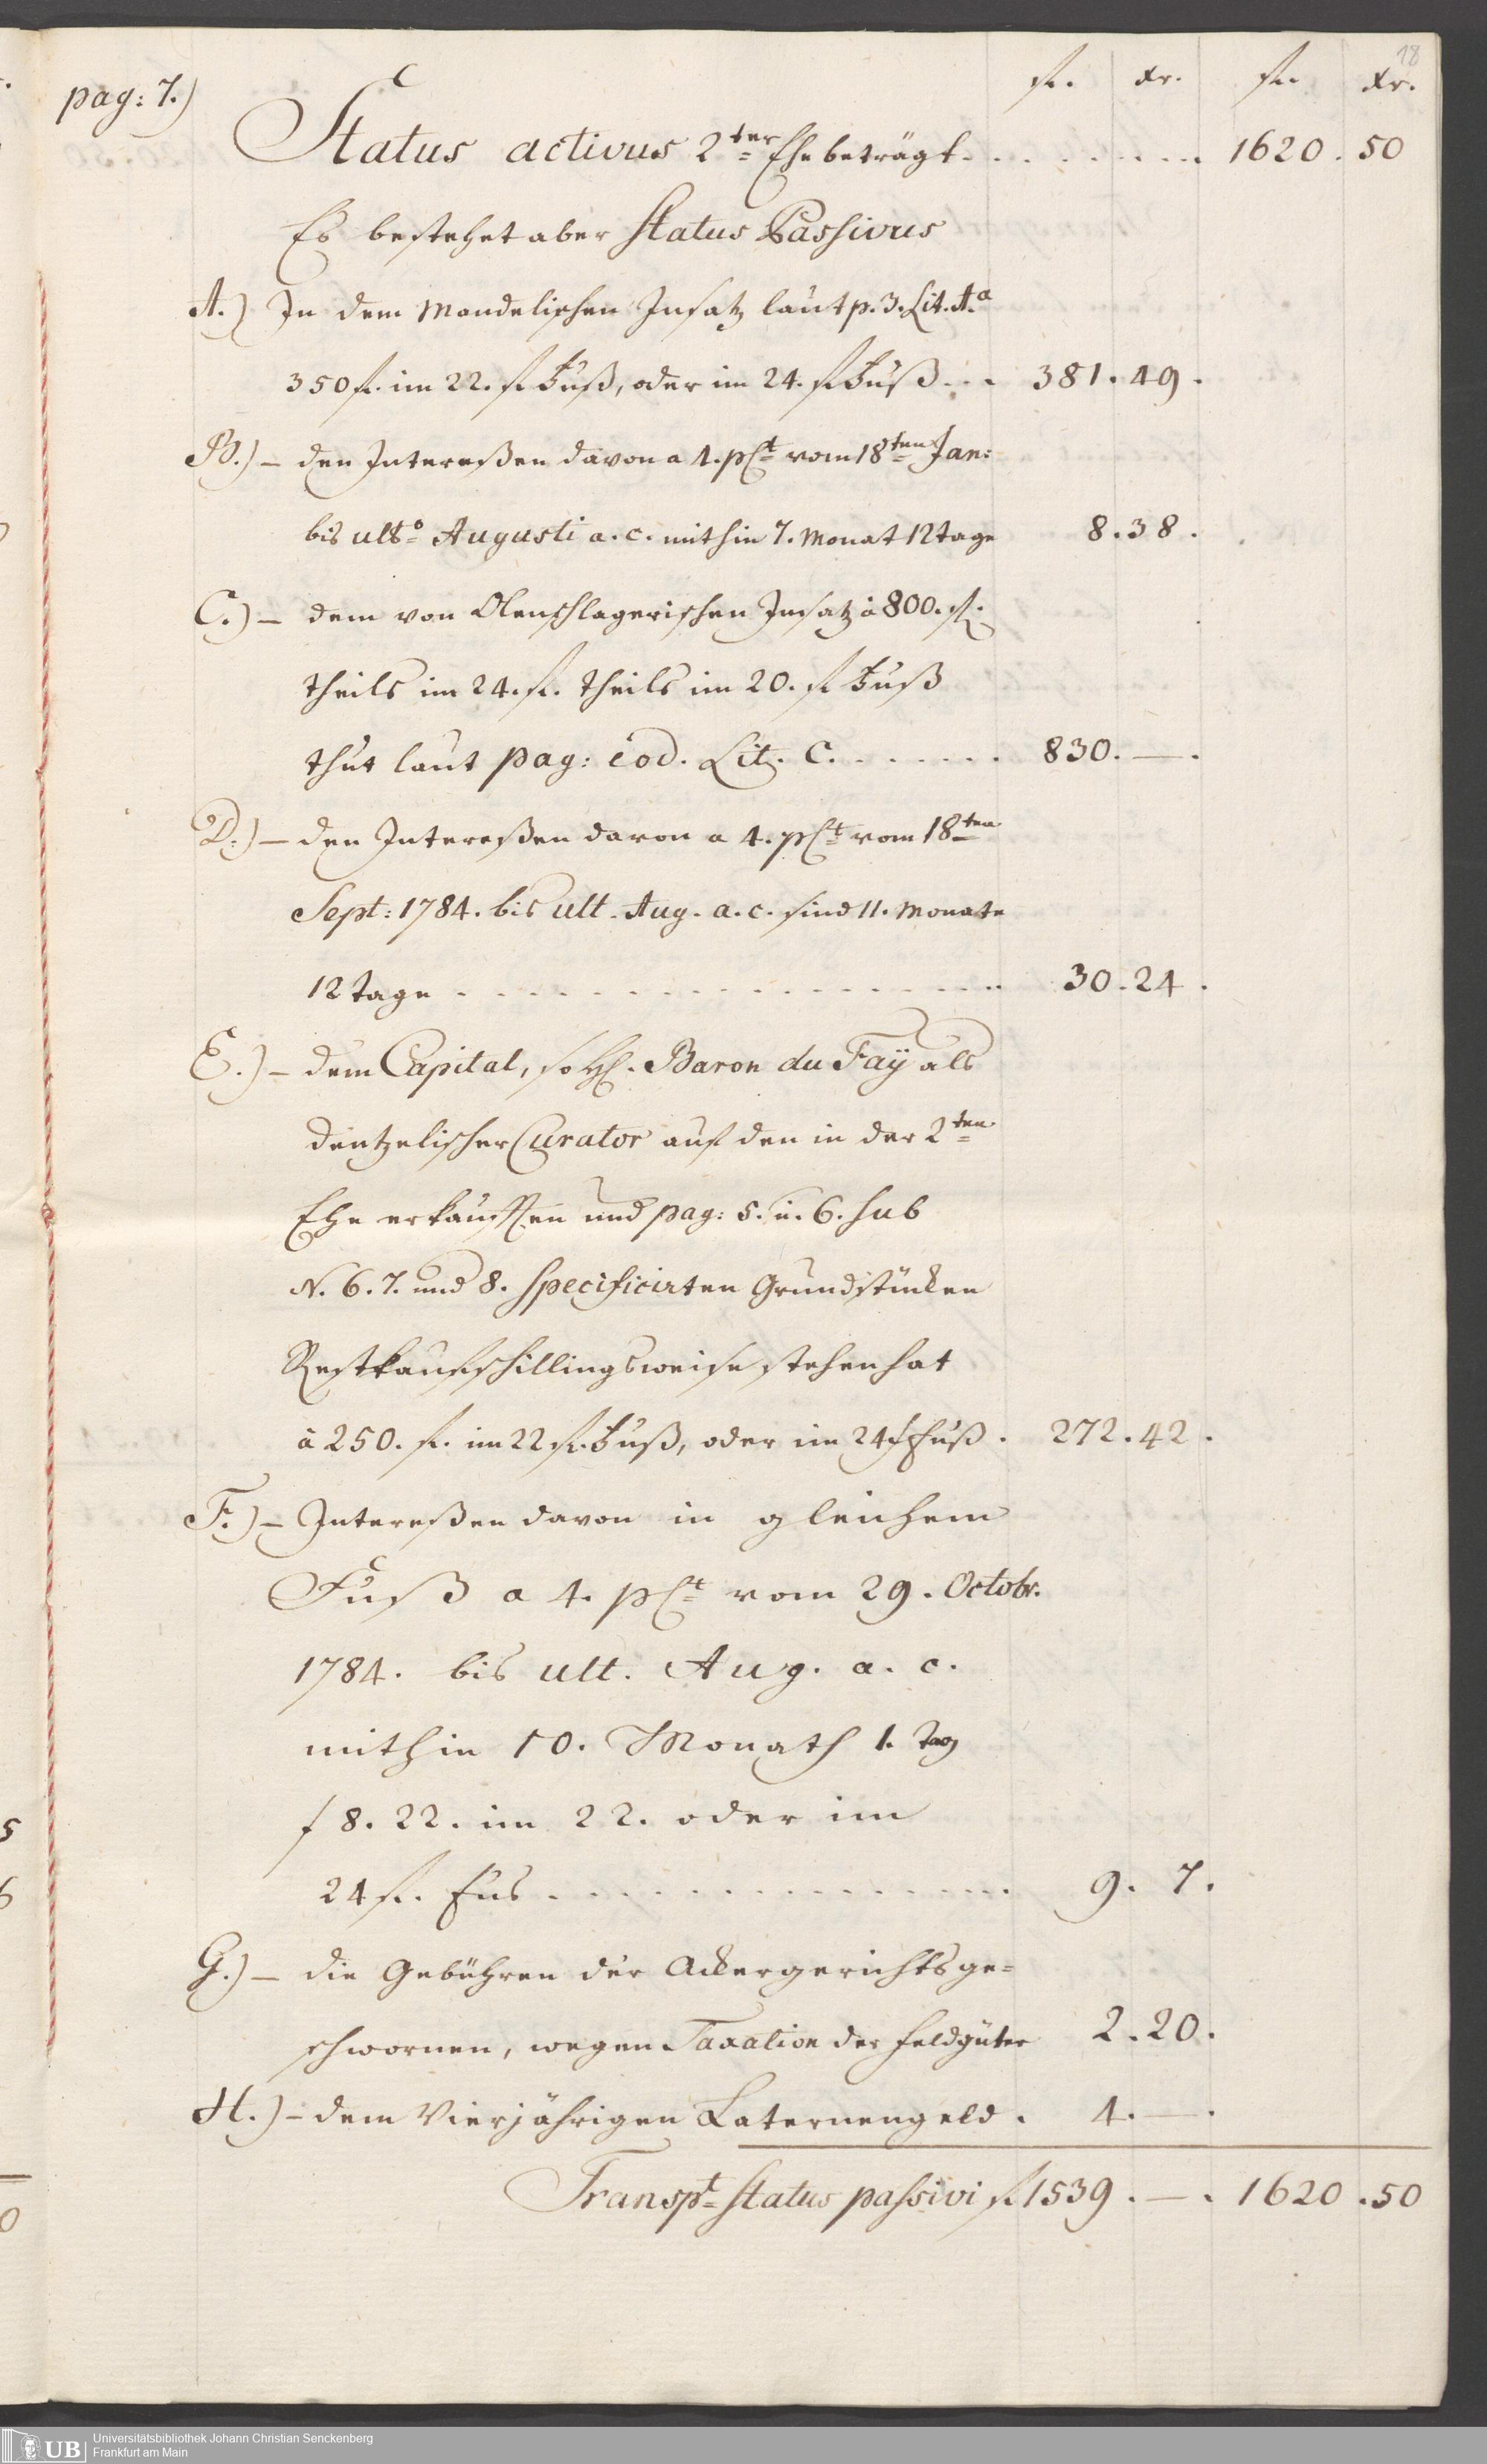 18
pag: 7.)
fl. xr. fl. xr.
Status activus 2ter Ehe beträgt . . . . . . . . . 1620 . 50
Es bestehet aber Status Passivus
A.) In dem Mandelischen Insatz laut p. 3. Lit. A.a
350 fl. im 22. fl Fuß, oder im 24. fl Fuß . . . 381 . 49 .
B.) – den Intereßen davon a 4. pCt vom 18ten Jan:
bis ulto Augusti a. c. mithin 7. Monat 12 tage 8 . 38 .
C.) – dem von Olenschlagerischen Insatz à 800. fl.
theils im 24. fl. theils im 20. fl Fuß
thut laut pag: eod. Lit. C. . . . . . . . 830. — .
D.) – den Intereßen davon a 4. pCt vom 18ten
Sept: 1784. bis ult. Aug. a. c. sind 11. Monate
12 tage . . . . . . . . . . . . . . . . 30 . 24 .
E.) – dem Capital, so H. Baron du Faÿ als
dentzelischer Curator auf den in der 2ten
Ehe erkaufften und pag: 5. u. 6. sub
N. 6. 7. und 8. specificirten Grundstücken
Restkaufschillingsweise stehen hat
à 250. fl. im 22 fl. Fuß, oder im 24 f Fuß . 272 . 42 .
F.) – Intereßen davon in gleichem
Fuß a 4. pCt vom 29. Octobr.
1784. bis ult. Aug. a. c.
mithin 10. Monath 1. tag
f 8. 22. im 22. oder im
24 fl. Fus . . . . . . . . . . . . . . . 9 . 7 .
G.) – die Gebühren der Ackergerichtsge=
schwornen, wegen Taxation der Feldgüter 2 . 20 .
H.) – dem Vierjährigen Laternengeld . 4 . — .
Transpt Status passivi fl 1539 . — . 1620 . 50
5
6
0
UB Universitätsbibliothek Johann Christian Senckenberg
Frankfurt am Main